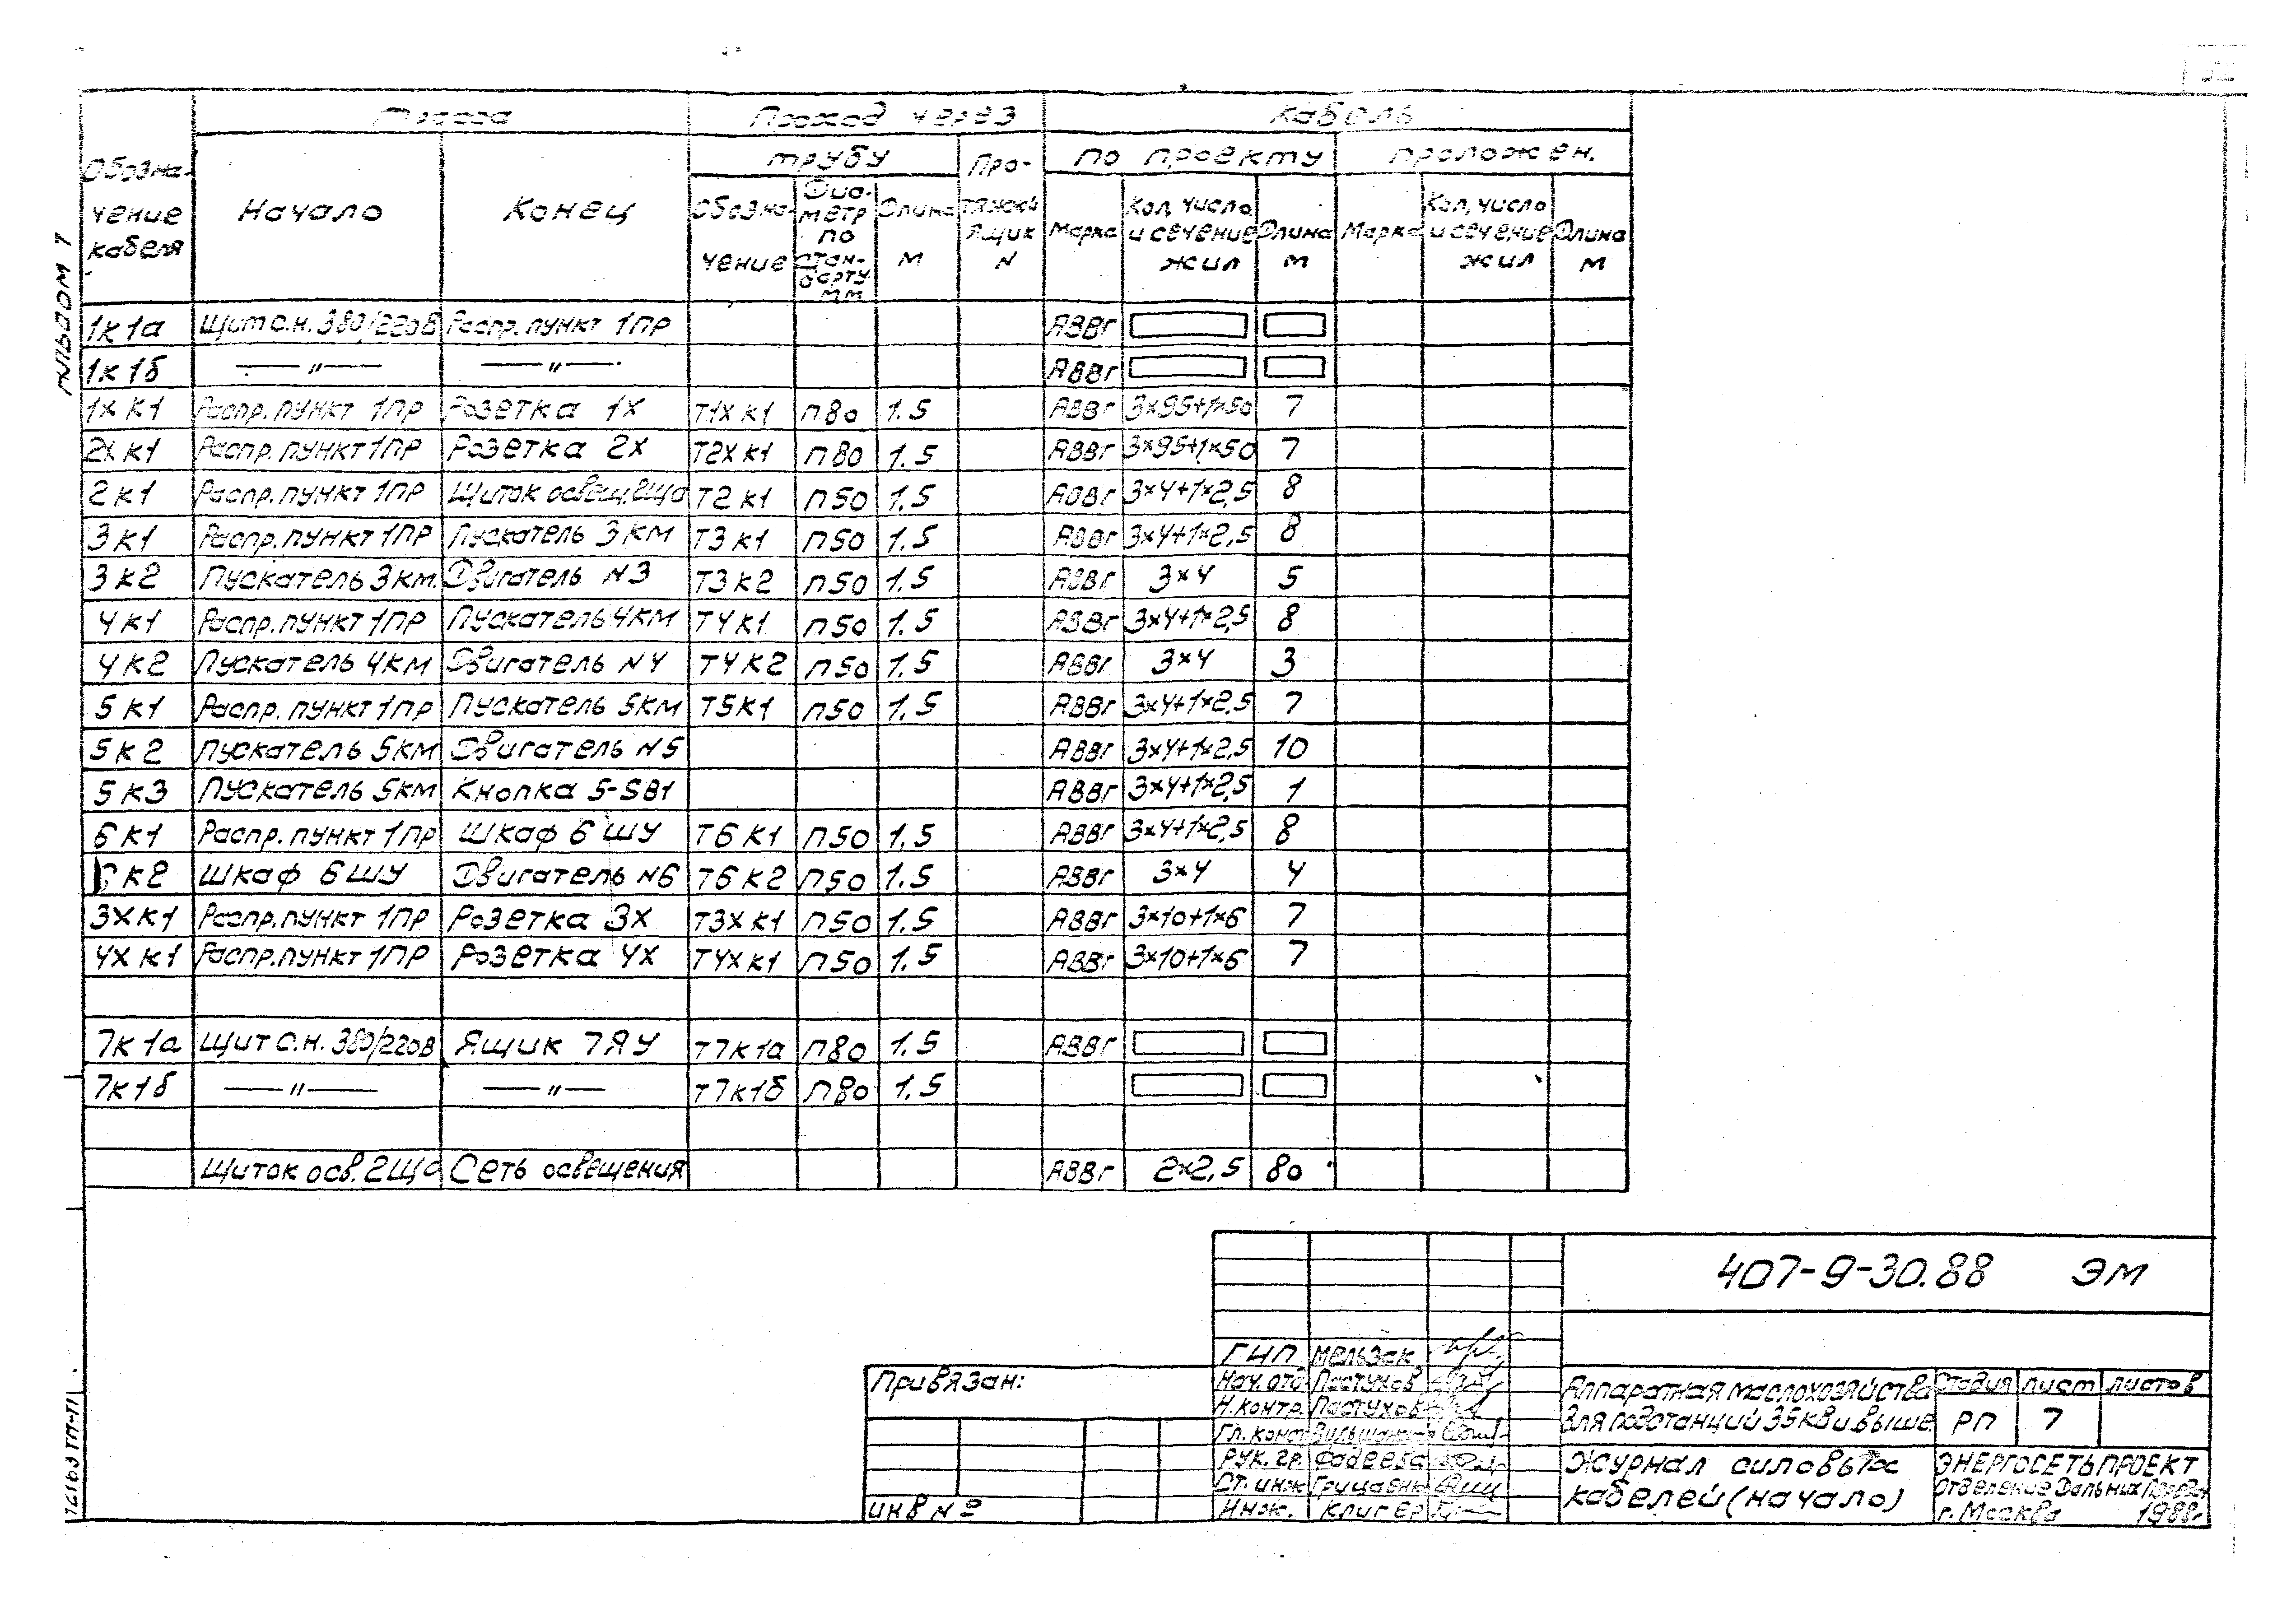 52
Альбом 7
Обозна-
чение
кабеля
Трасса
Проход через
Кабель
Начало
Конец
трубу
Про-
тяжной
ящик
N
по проекту
проложен.
Обозна-
чение
Диа-
метр
по
стан-
дарту
мм
Длина
м
Марка
Кол, число
и сечение
жил
Длина
м
Марка
Кол, число
и сечение
жил
Длина
м
1к1а Щит с.н. 380/220В Распр. пункт 1ПР АВВГ
1к1б —"— —"— АВВГ
1х к1 Распр. пункт 1ПР Розетка 1х Т1х к1 п80 1.5 АВВГ 3×95+1×50 7
2х к1 Распр. пункт 1ПР Розетка 2х Т2х к1 п80 1.5 АВВГ 3×95+1×50 7
2к1 Распр. пункт 1ПР Щиток освещ. 2ЩО Т2к1 п50 1.5 АВВГ 3×4+1×2,5 8
3к1 Распр. пункт 1ПР Пускатель 3КМ Т3к1 п50 1.5 АВВГ 3×4+1×2,5 8
3к2 Пускатель 3км. Двигатель N3 Т3к2 п50 1.5 АВВГ 3×4 5
4к1 Распр. пункт 1ПР Пускатель 4КМ Т4к1 п50 1.5 АВВГ 3×4+1×2,5 8
4к2 Пускатель 4КМ Двигатель N4 Т4к2 п50 1.5 АВВГ 3×4 3
5к1 Распр. пункт 1ПР Пускатель 5КМ Т5к1 п50 1.5 АВВГ 3×4+1×2,5 7
5к2 Пускатель 5КМ Двигатель N5 АВВГ 3×4+1×2,5 10
5к3 Пускатель 5КМ Кнопка 5-SB1 АВВГ 3×4+1×2,5 1
6к1 Распр. пункт 1ПР Шкаф 6ШУ Т6к1 п50 1.5 АВВГ 3×4+1×2,5 8
6к2 Шкаф 6ШУ Двигатель N6 Т6к2 п50 1.5 АВВГ 3×4 4
3х к1 Распр. пункт 1ПР Розетка 3х Т3х к1 п50 1.5 АВВГ 3×10+1×6 7
4х к1 Распр. пункт 1ПР Розетка 4х Т4х к1 п50 1.5 АВВГ 3×10+1×6 7
7к1а Щит с.н. 380/220В Ящик 7ЯУ Т7к1а п80 1.5 АВВГ
7к1б —"— —"— Т7к1б п80 1.5
Щиток осв. 2ЩО Сеть освещения АВВГ 2×2,5 80
407-9-30.88 ЭМ
ГИП Мельзак
Нач. отд. Пастухов
Н.контр. Пастухов
Гл. конст.
Рук. гр. Фадеева
Ст. инж. Грицаенк
Инж. Клигер
Привязан:
Инв №
Аппаратная маслохозяйства
для подстанций 35 кВ и выше
Стадия Лист Листов
РП 7
Журнал силовых
кабелей (начало)
ЭНЕРГОСЕТЬПРОЕКТ
Отделение Дальних Передач
г. Москва 1988г.